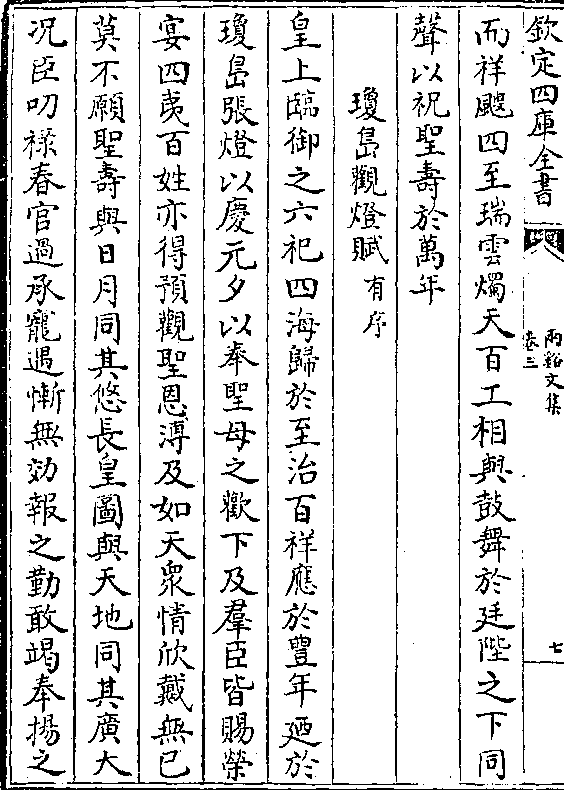 欽定四庫全書
兩谿文集
卷三
七
而祥飈四至瑞雲燭天百工相與鼓舞於廷陛之下同
聲以祝聖壽於萬年
瓊島觀燈賦有序
皇上臨御之六祀四海歸於至治百祥應於豐年廼於
瓊島張燈以慶元夕以奉聖母之歡下及羣臣皆賜榮
宴四夷百姓亦得預觀聖恩溥及如天衆情欣戴無已
莫不願聖壽與日月同其悠長皇圖與天地同其廣大
况臣叨祿春官過承寵遇慚無効報之勤敢竭奉揚之